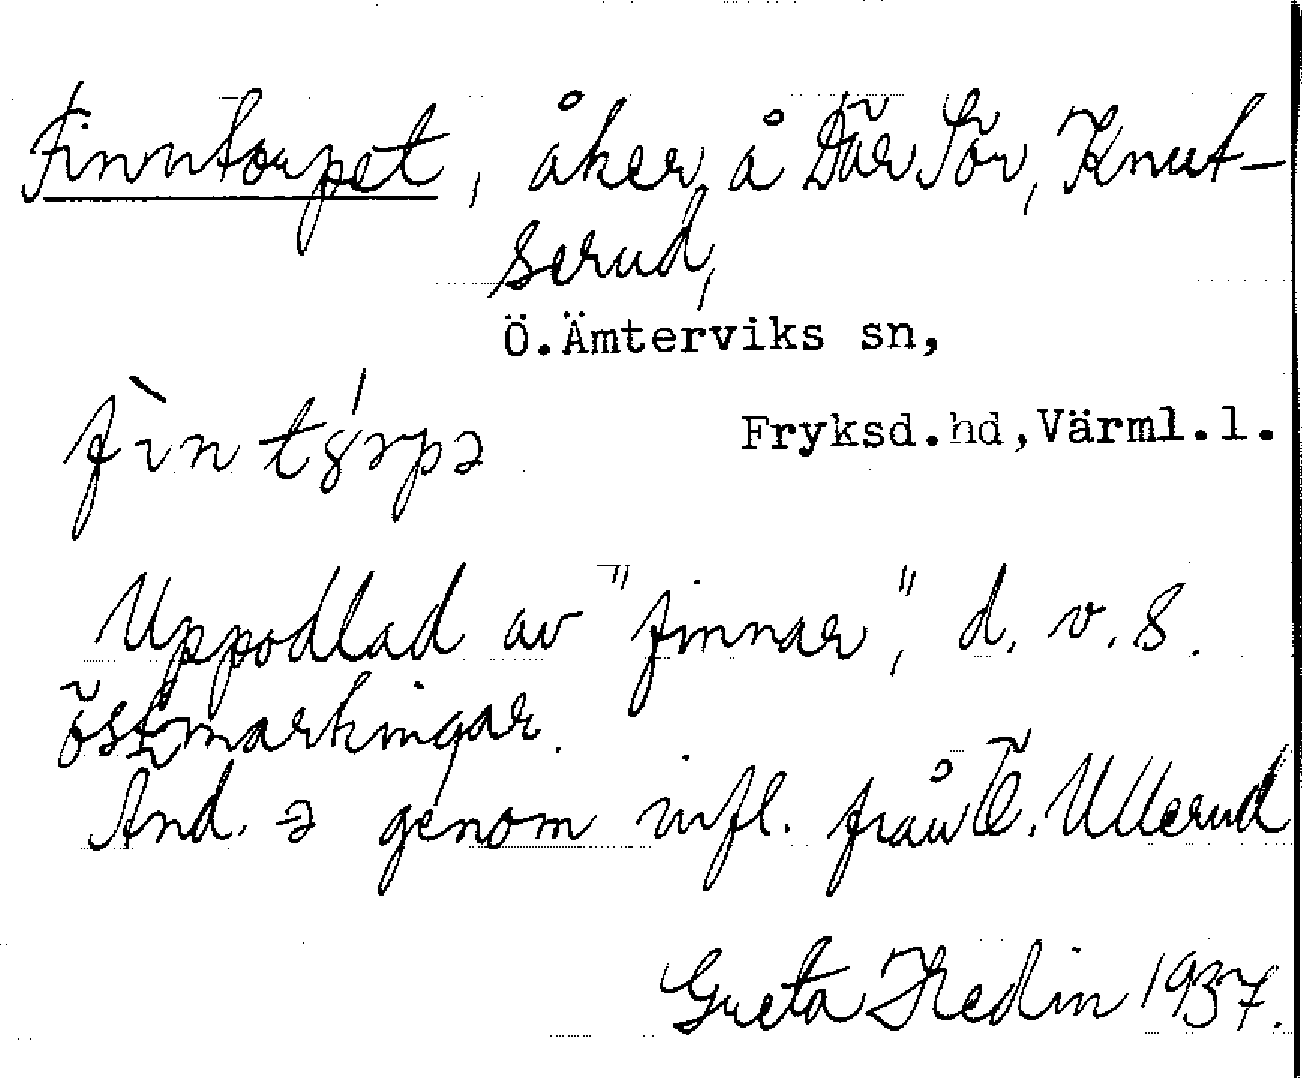 Finntorpet, åker å Där Sör, Knut-
serud,
Ö.Ämterviks sn,
Fryksd.hd,Värml.l.
Uppodlad av "finnar", d. v. s.
östmarkingar.
Änd. ə genom infl. från Ö. Ullerud
Greta Hedin 1937.